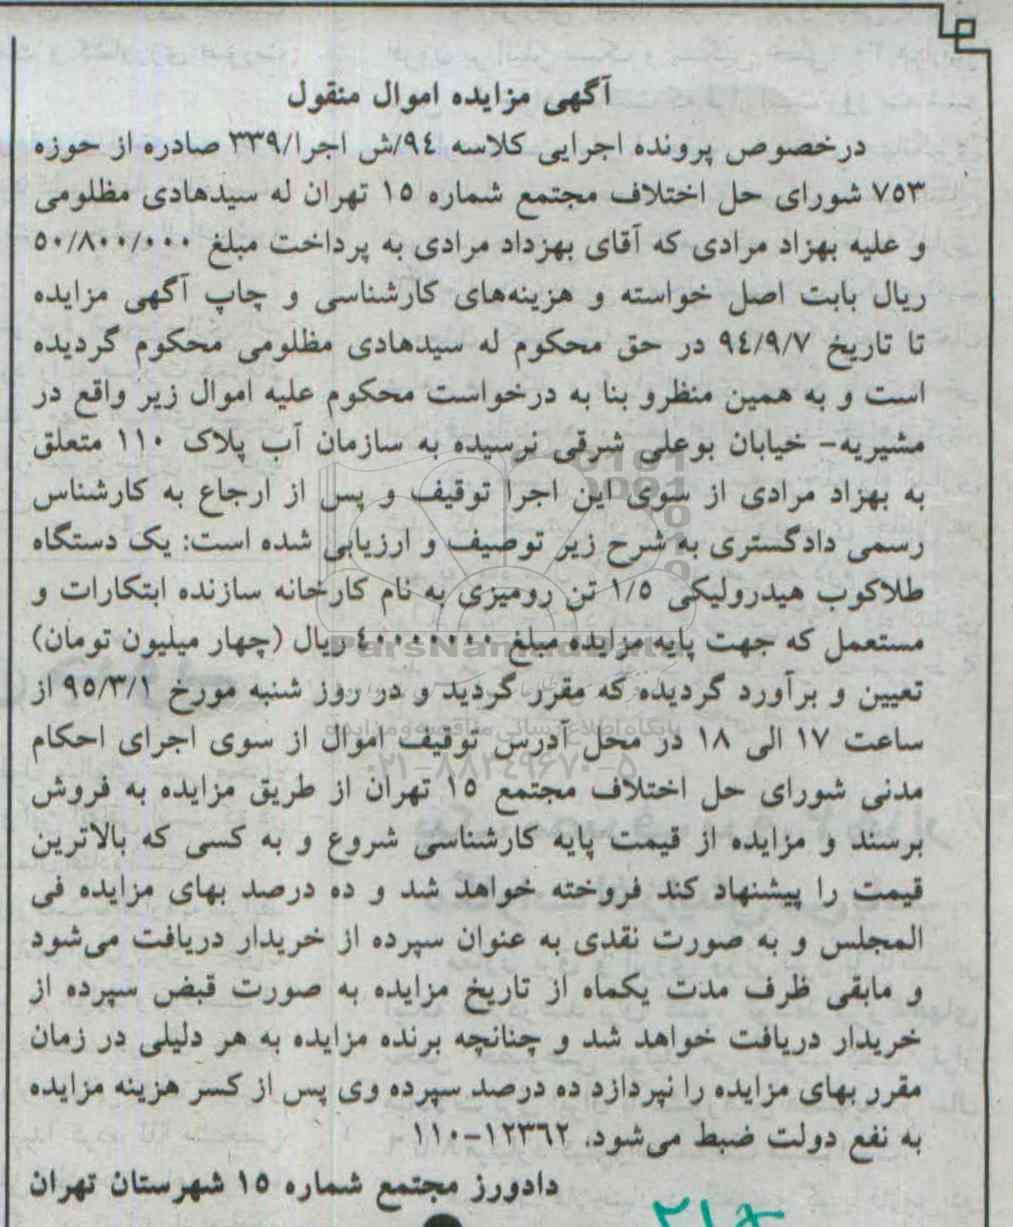 آگهی مزایده اموال منقول
درخصوص پرونده اجرایی کلاسه ۹٤/ش اجرا/۳۳۹ صادره از حوزه
۷۵۳ شورای حل اختلاف مجتمع شماره ۱۵ تهران له سیدهادی مظلومی
و علیه بهزاد مرادی که آقای بهزداد مرادی به پرداخت مبلغ ۵۰/۸۰۰/۰۰۰
ریال بابت اصل خواسته و هزینه‌های کارشناسی و چاپ آگهی مزایده
تا تاریخ ۹٤/۹/۷ در حق محکوم له سیدهادی مظلومی محکوم گردیده
است و به همین منظرو بنا به درخواست محکوم علیه اموال زیر واقع در
مشیریه- خیابان بوعلی شرقی نرسیده به سازمان آب پلاک ۱۱۰ متعلق
به بهزاد مرادی از سوی این اجرا توقیف و پس از ارجاع به کارشناس
رسمی دادگستری به شرح زیر توصیف و ارزیابی شده است: یک دستگاه
طلاکوب هیدرولیکی ۱/۵ تن رومیزی به نام کارخانه سازنده ابتکارات و
مستعمل که جهت پایه مزایده مبلغ ٤۰۰۰۰۰۰۰ ریال (چهار میلیون تومان)
تعیین و برآورد گردیده که مقرر گردید و در روز شنبه مورخ ۹۵/۳/۱ از
ساعت ۱۷ الی ۱۸ در محل آدرس توقیف اموال از سوی اجرای احکام
مدنی شورای حل اختلاف مجتمع ۱۵ تهران از طریق مزایده به فروش
برسند و مزایده از قیمت پایه کارشناسی شروع و به کسی که بالاترین
قیمت را پیشنهاد کند فروخته خواهد شد و ده درصد بهای مزایده فی
المجلس و به صورت نقدی به عنوان سپرده از خریدار دریافت می‌شود
و مابقی ظرف مدت یکماه از تاریخ مزایده به صورت قبض سپرده از
خریدار دریافت خواهد شد و چنانچه برنده مزایده به هر دلیلی در زمان
مقرر بهای مزایده را نپردازد ده درصد سپرده وی پس از کسر هزینه مزایده
به نفع دولت ضبط می‌شود. ۱۲۳٦۲-۱۱۰
دادورز مجتمع شماره ۱۵ شهرستان تهران
ParsNamadData
پایگاه اطلاع رسانی مناقصه و مزایده
۰۲۱-۸۸۳٤۹٦۷۰-۵